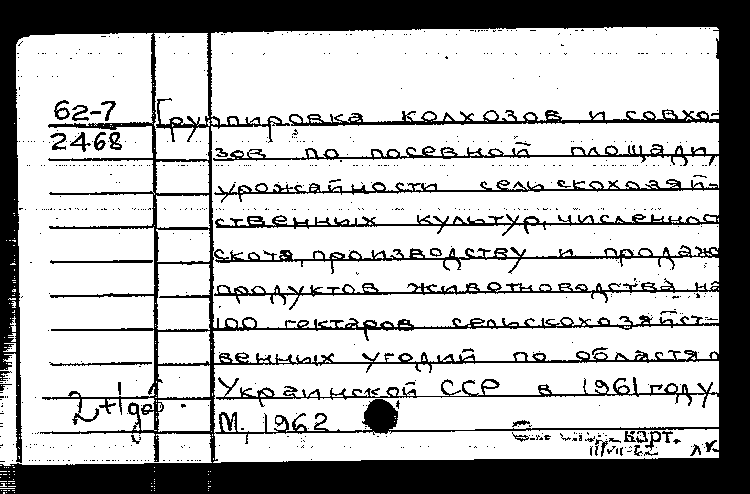 62-7
2468
Группировка колхозов и совхо=
зов по посевной площади,
урожайности сельскохозяй=
ственных культур, численнос
скота, производству и продаж
продуктов животноводства на
100 гектаров сельскохозяйст=
венных угодий по областя
Украинской ССР в 1961 году.
М, 1962.
2+1
карт.